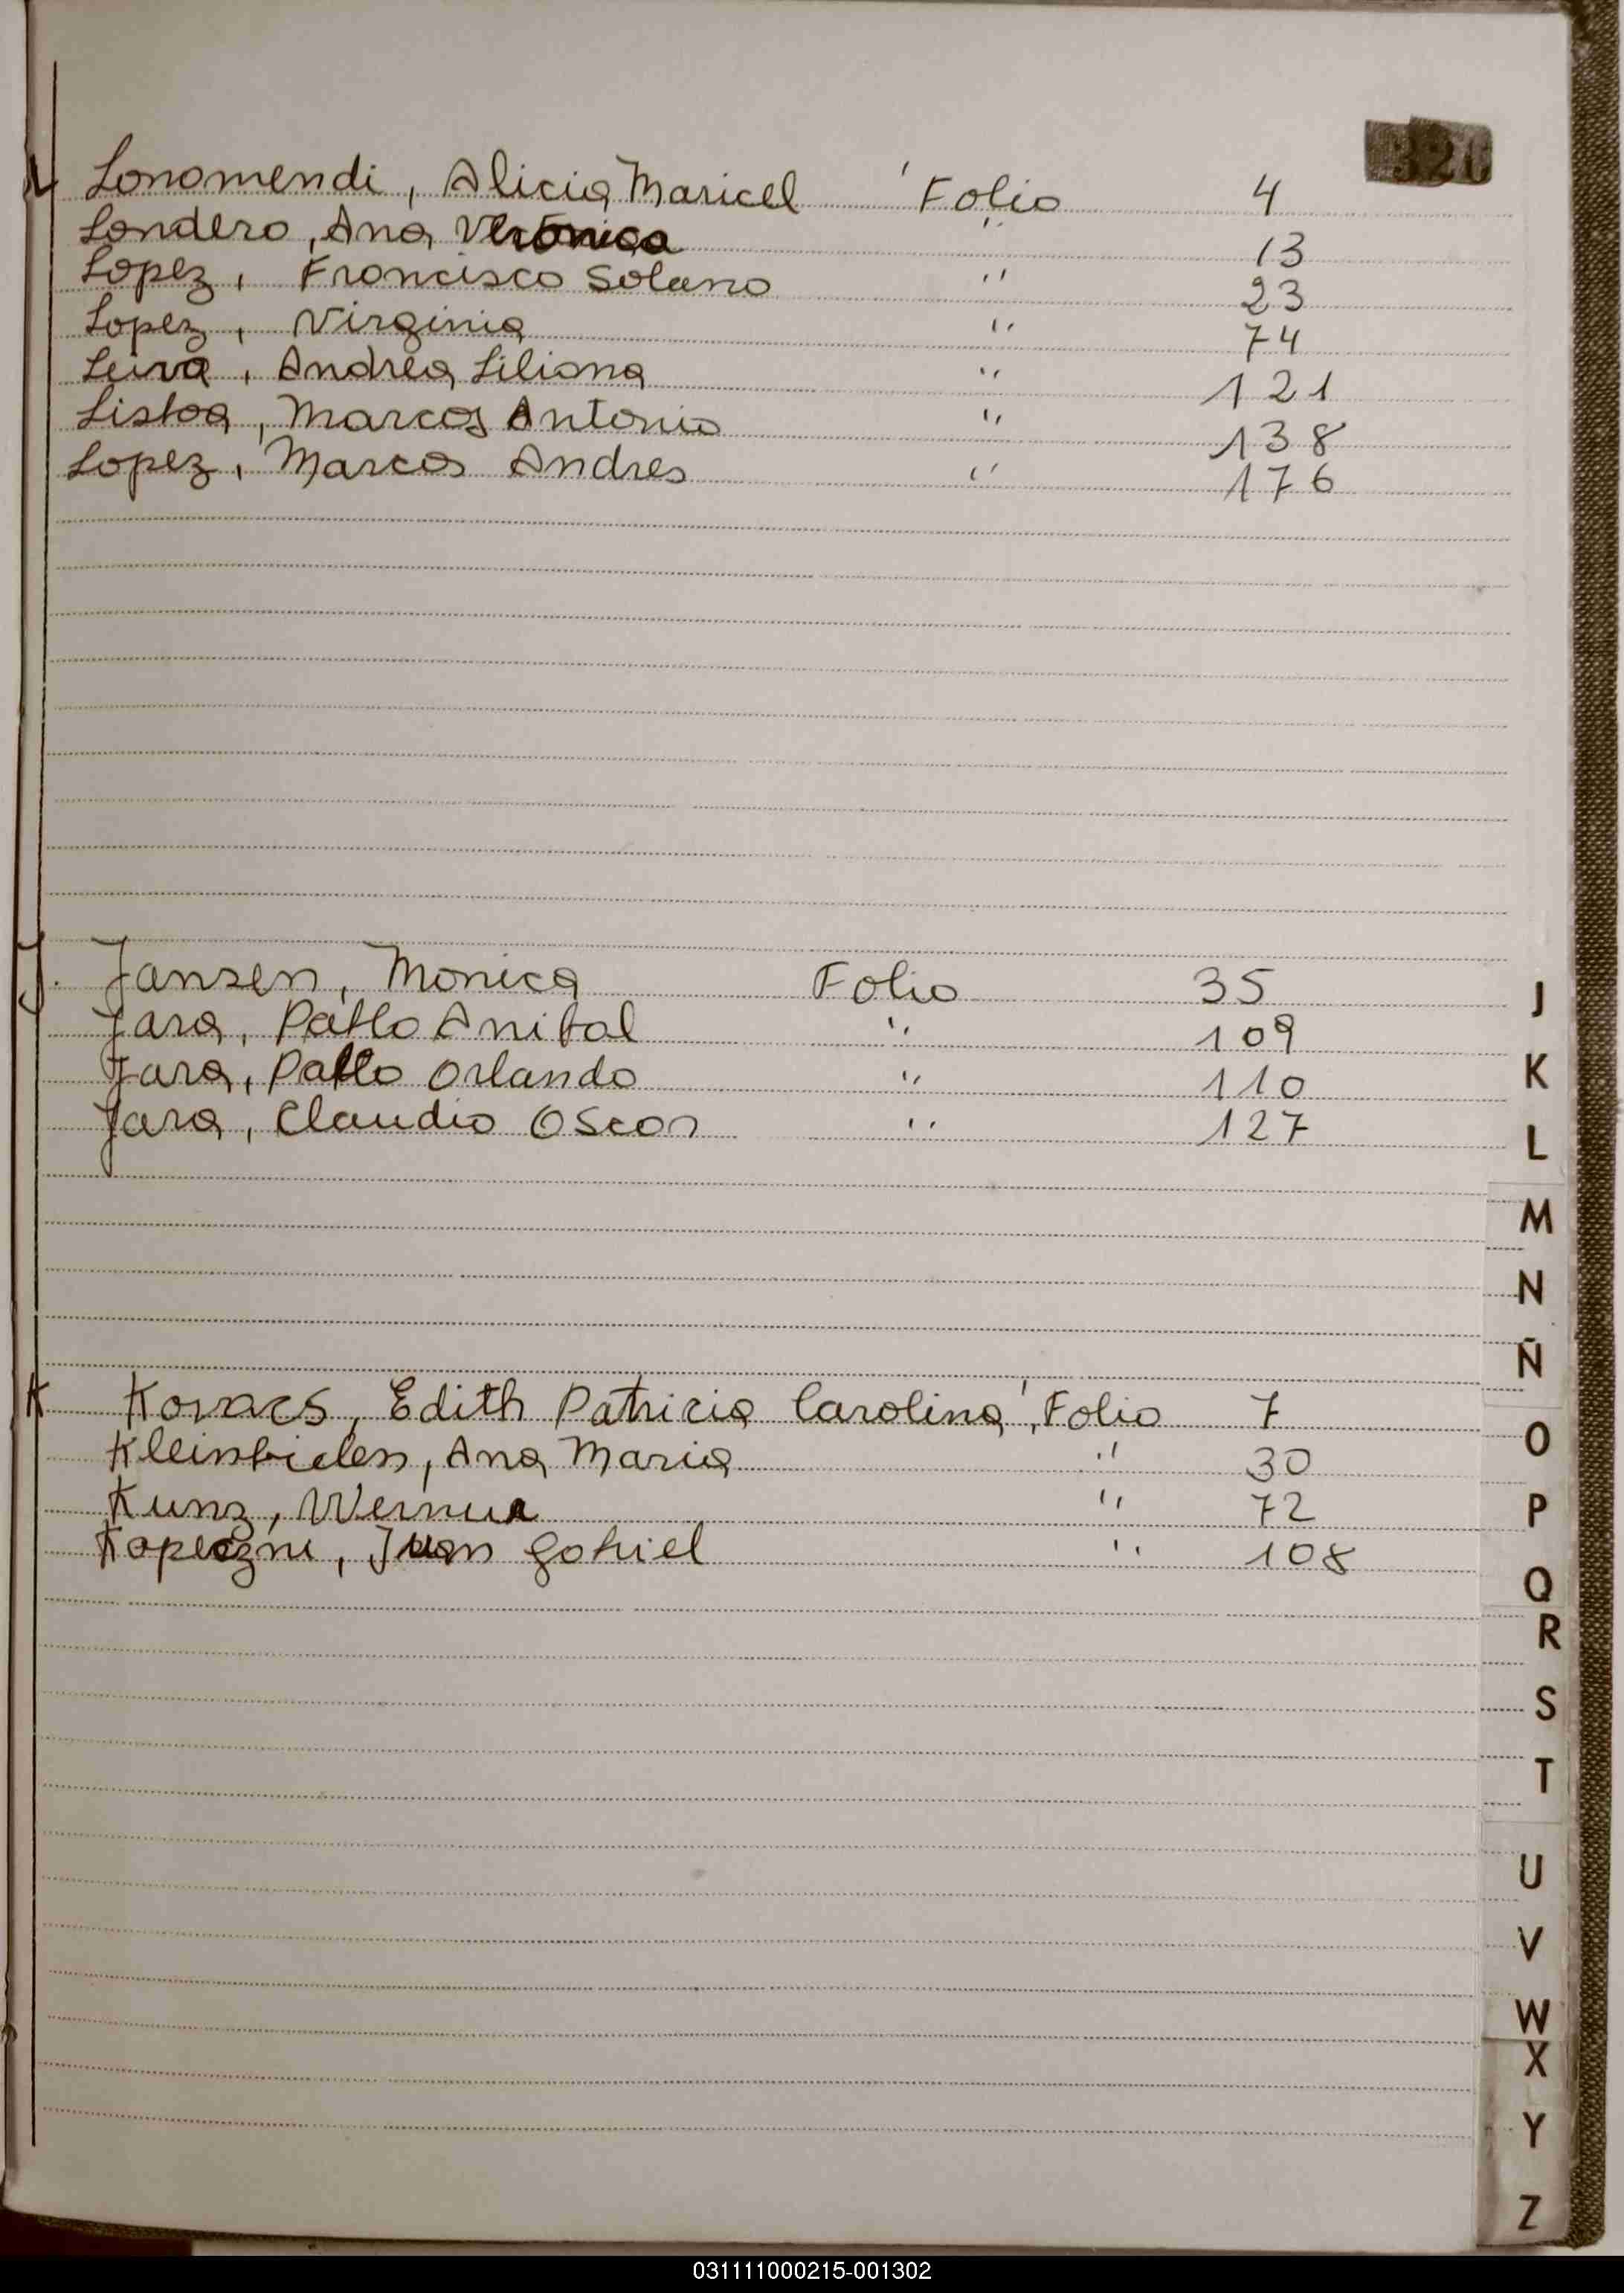 L Lonomendi, Alicia Maricel Folio 4
Londero, Ana Veronica " 13
Lopez, Francisco Solano " 23
Lopez, Virginia " 74
Leiva, Andrea Liliana " 121
Listoa, Marcos Antonio " 138
Lopez, Marcos Andres " 176
J. Jansen, Monica Folio 35
Jara, Pablo Anibal " 109
Jara, Pablo Orlando " 110
Jara, Claudio Oscar " 127
K Kovacs, Edith Patricia Carolina, Folio 7
Ana Maria " 30
Kunz, Werner " 72
Juan Gabriel " 108
J
K
L
M
N
Ñ
O
P
Q
R
S
T
U
V
W
X
Y
Z
031111000215-001302